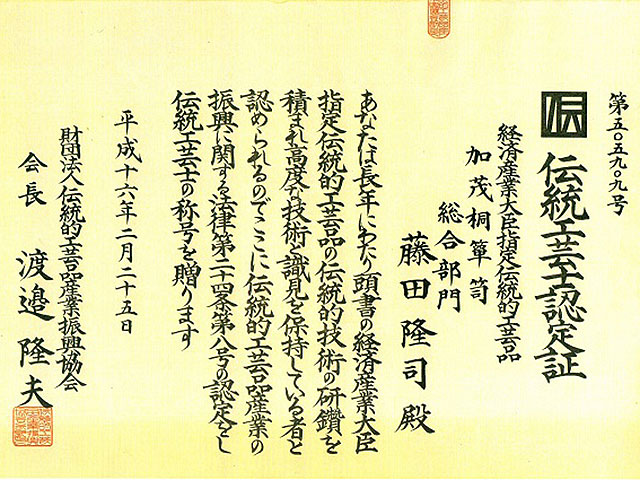 第五〇五九〇九号
伝
伝統工芸士認定証
経済産業大臣指定伝統的工芸品
加茂桐箪笥
総合部門
藤田隆司殿
あなたは長年にわたり頭書の経済産業大臣
指定伝統的工芸品の伝統的技術の研鑽を
積まれ高度な技術と識見を保持している者と
認められるのでここに伝統的工芸品産業の
振興に関する法律第二十四条第八号の認定をし
伝統工芸士の称号を贈ります
平成十六年二月二十五日
財団法人伝統的工芸品産業振興協会
会長 渡邉隆夫